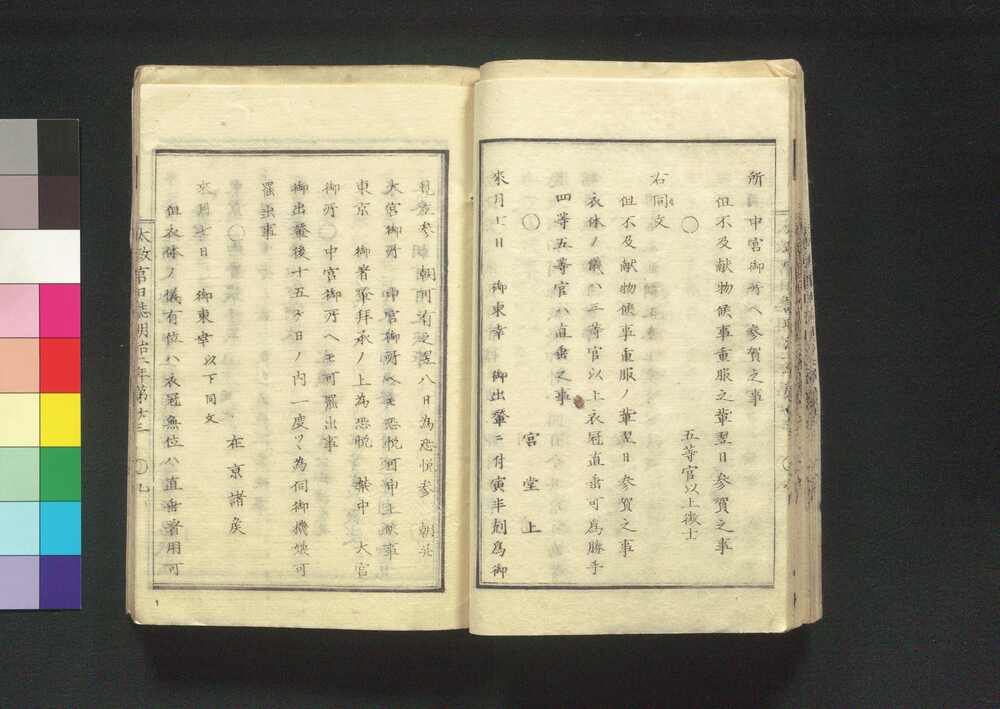 所 中宮御所ヘ參賀之事
但不及献物候事重服之輩翌日參賀之事
五等官以上徴士
〇
右同文
但不及献物候事重服ノ輩翌日參賀之事
衣体ノ儀ハ三等官以上衣冠直垂可為勝手
四等五等官ハ直垂之事
〇
宮堂上
來月七日 御東幸 御出輦ニ付寅半刻為御
見立參 朝同八日為恐悦參 朝并
大宮御所 中宮御所ヘモ恐悦可申上候事
東京 御着輦拜承ノ上為恐悦 禁中 大宮
御所 中宮御所ヘモ可罷出事
御出輦後十五ケ日ノ内一度ツヽ為伺御機嫌可
罷出事
〇
在京諸矦
來月七日 御東幸 以下同文
但衣体ノ儀有位ハ衣冠無位ハ直垂着用可
太政官日誌明治二年第廿三 〇 七